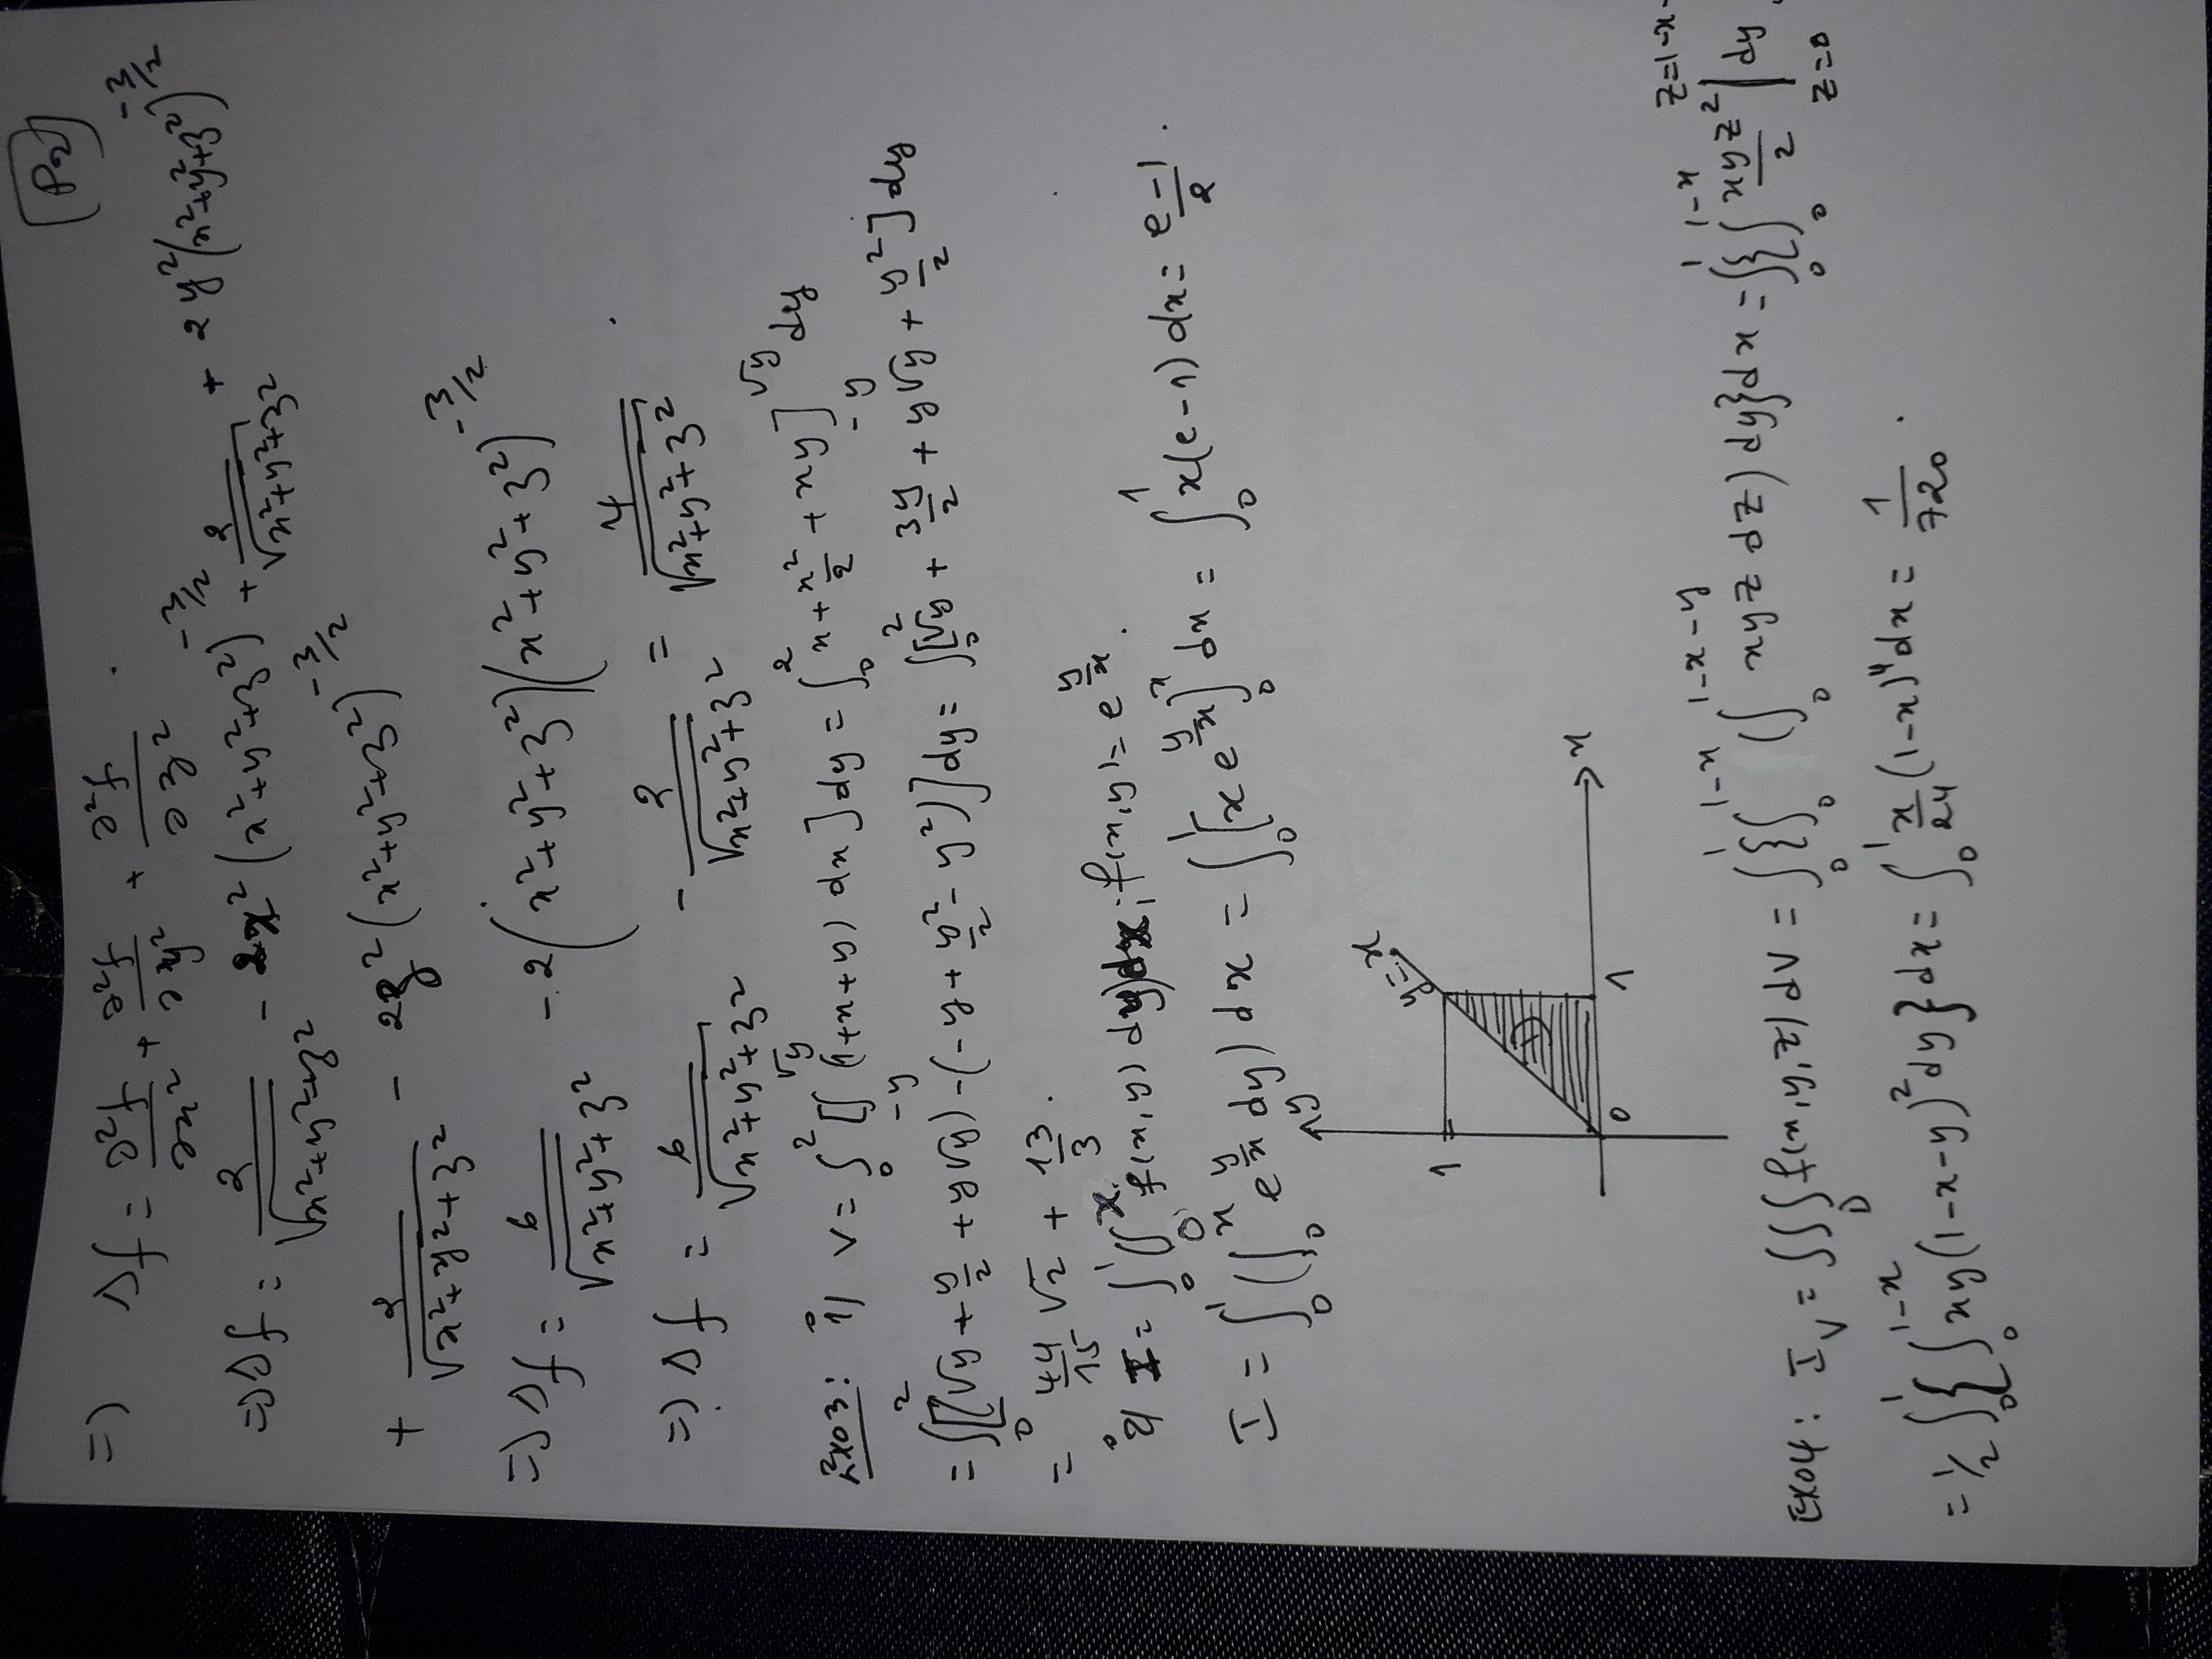 P2
=) Δf = ∂²f/∂x² + ∂²f/∂y² + ∂²f/∂z² .
=) Δf = 2/√x²+y²+z² - 2x²(x²+y²+z²)^-3/2 + 2/√x²+y²+z² + 2y²(x²+y²+z²)^-3/2
+ 2/√x²+y²+z² - 2z²(x²+y²+z²)^-3/2
=) Δf = 6/√x²+y²+z² - 2(x²+y²+z²)(x²+y²+z²)^-3/2
=) Δf = 6/√x²+y²+z² - 2/√x²+y²+z² = 4/√x²+y²+z² .
Exo3: 1°/ V = ∫₀² [∫_-y^√y (1+x+y) dx] dy = ∫₀² x + x²/2 + xy]_-y^√y dy
= ∫₀² [(√y + y/2 + y√y) - (-y + y²/2 - y²)] dy = ∫₀² [√y + 3y/2 + y√y + y²/2] dy
= 44/15 √2 + 13/3 .
2°/ I = ∫₀¹ (∫₀^x f(x,y) dy) dx ; f(x,y) = e^y/x .
I = ∫₀¹ (∫₀^x e^y/x dy) dx = ∫₀¹ [x e^y/x]₀^x dx = ∫₀¹ x(e-1) dx = e-1/2 .
y
y=x
1
D
0
1
x
Exo4: I_V = ∫∫∫_D f(x,y,z) dV = ∫₀¹ {∫₀^1-x (∫₀^1-x-y xyz dz) dy} dx = ∫₀¹ {∫₀^1-x xyz²/2 |_z=0^z=1-x- dy
= 1/2 ∫₀¹ {∫₀^1-x xy(1-x-y)² dy} dx = ∫₀¹ x/24 (1-x)⁴ dx = 1/720 .